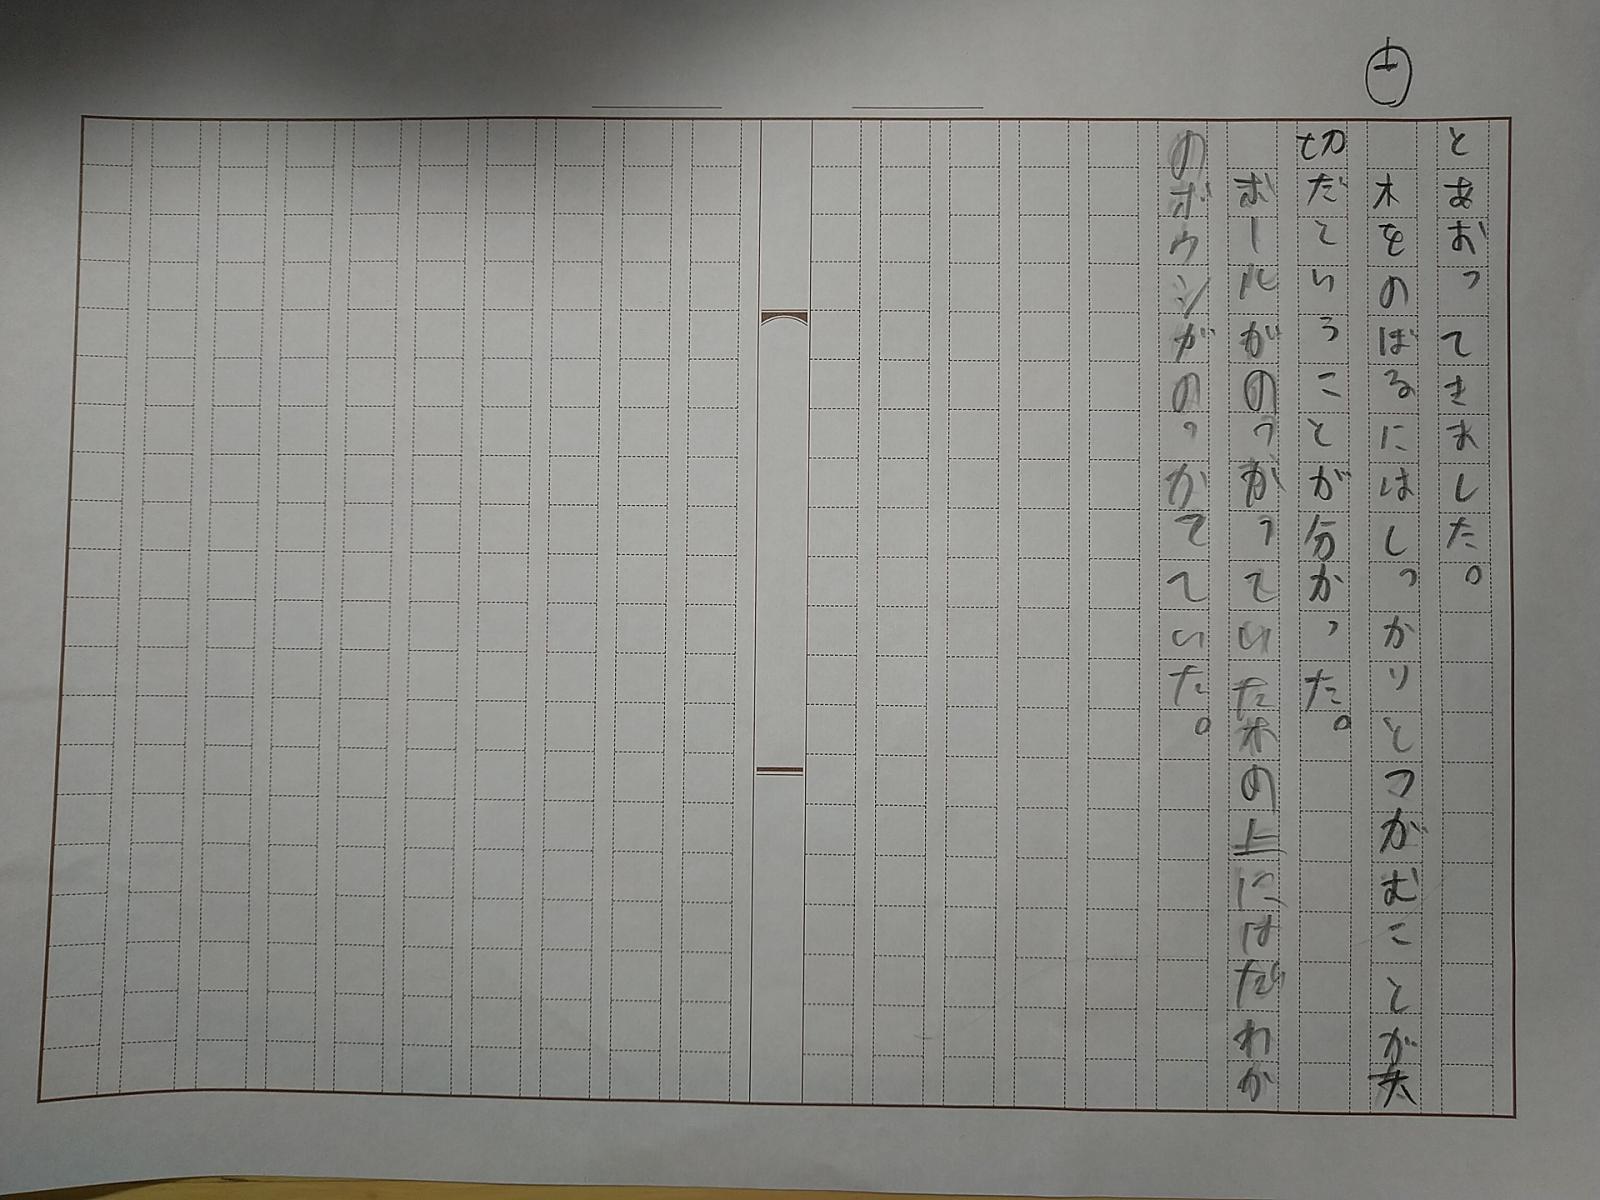 とあおってきました。
木をのばるにはしっかりとつがむことが大
切だということが分かった。
ボールがのっがっていた木の上にはだれか
のボウシがのっかてていた。